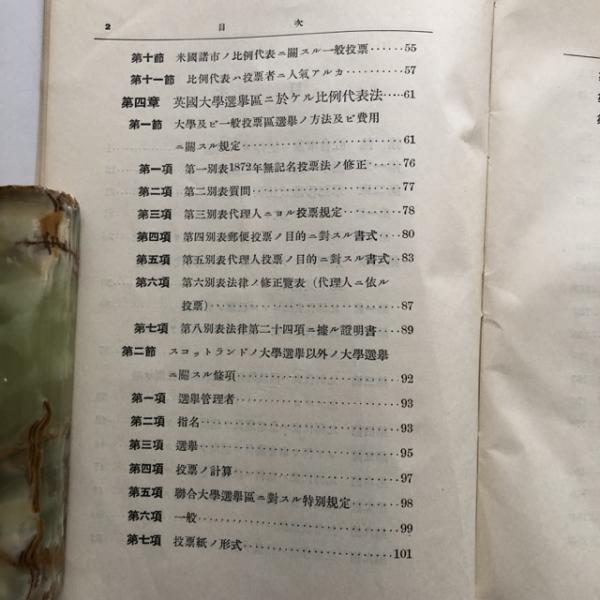 2 目次
第十節 米國諸市ノ比例代表ニ關スル一般投票……55
第十一節 比例代表ハ投票者ニ人氣アルカ……57
第四章 英國大學選擧區ニ於ケル比例代表法……61
第一節 大學及ビ一般投票區選擧ノ方法及ビ費用
ニ關スル規定……61
第一項 第一別表1872年無記名投票法ノ修正……76
第二項 第二別表質問……77
第三項 第三別表代理人ニヨル投票規定……78
第四項 第四別表郵便投票ノ目的ニ對スル書式……80
第五項 第五別表代理人投票ノ目的ニ對スル書式……83
第六項 第六別表法律ノ修正覽表（代理人ニ依ル
投票）……87
第七項 第八別表法律第二十四項ニ據ル證明書……89
第二節 スコットランドノ大學選擧以外ノ大學選擧
ニ關スル條項……92
第一項 選擧管理者……93
第二項 指名……93
第三項 選擧……95
第四項 投票ノ計算……97
第五項 聯合大學選擧區ニ對スル特別規定……98
第六項 一般……99
第七項 投票紙ノ形式……101